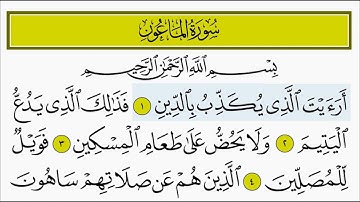 سُورَةُ الْمَاعُونِ
بِسْمِ اللَّهِ الرَّحْمَٰنِ الرَّحِيمِ
أَرَءَيْتَ الَّذِي يُكَذِّبُ بِالدِّينِ ١ فَذَٰلِكَ الَّذِي يَدُعُّ
الْيَتِيمَ ٢ وَلَا يَحُضُّ عَلَىٰ طَعَامِ الْمِسْكِينِ ٣ فَوَيْلٌ
لِّلْمُصَلِّينَ ٤ الَّذِينَ هُمْ عَن صَلَاتِهِمْ سَاهُونَ